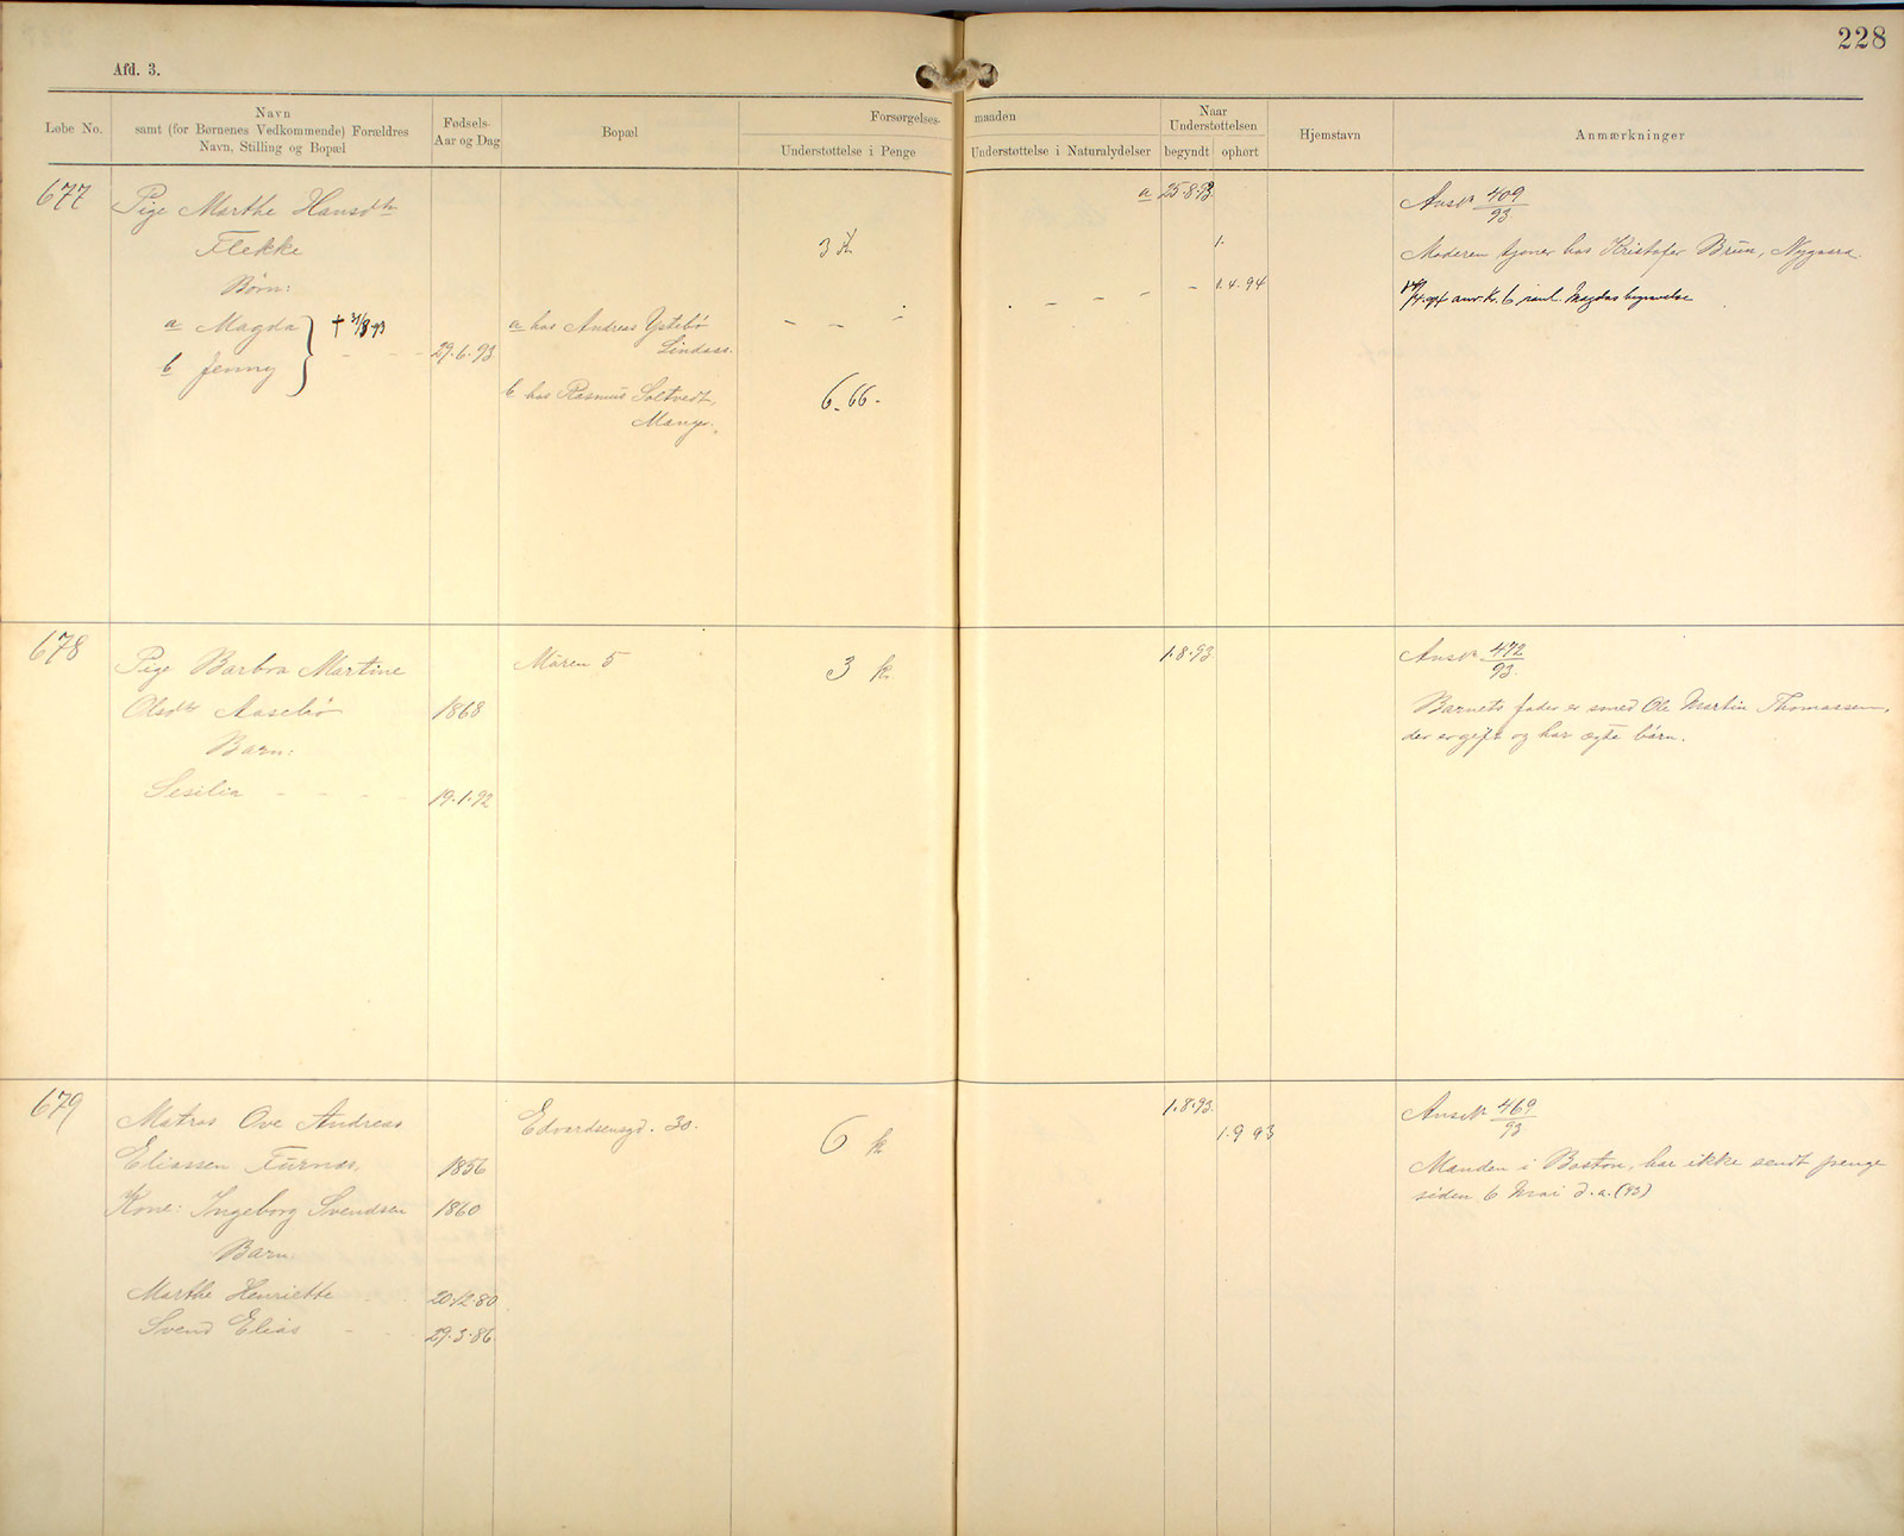 228
Afd. 3.
Løbe No.
Navn
samt (for Børnenes Vedkommende) Forældres
Navn, Stilling og Bopæl
Fødsels-
Aar og Dag
Bopæl
Forsørgelses-
maaden
Understøttelse i Penge
Understøttelse i Naturalydelser
Naar
Understøttelsen
begyndt
ophørt
Hjemstavn
Anmærkninger
677
Pige Marthe Hansdtr
Flekke
Børn:
a Magda
b Jenny
† 31/8 93
29.6.93
a hos Andreas Ystebø
Lindaas.
b hos Rasmus Soltvedt,
Manger.
3 Kr
6.66.
a 25.8.93.
1.
1.4.94
Ansk 409/93
Moderen tjener hos Kristofer Brun, Nygaard.
anv. Kr. 6 Magdas begravelse
678
Pige Barbra Martine
Olsdtr Aasebø
Barn:
Sesilia
1868
19.1.92
Møren 5
3 kr
1.8.93.
Ansk 472/93.
Barnets fader er smed Ole Martin Thomassen,
der er gift og har ægte børn.
679
Matros Ove Andreas
Eliassen Furnes,
Kone: Ingeborg Svendsen
Barn
Marthe Henriette
Svend Elias
1856
1860
20.12.80
29.3.86
Edvardsensgd. 30.
6 kr
1.8.93.
1.9 93
Ansk 469/93
Manden i Boston, har ikke sendt penge
siden 6 Mai d.a. (93)